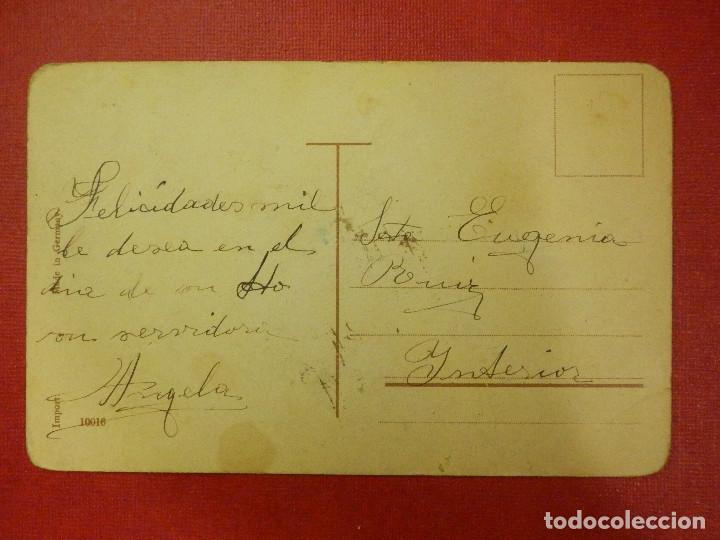 Felicidades mil
le desea en el
dia de su Sto
su servidora
Angela
Srta Eugenia
Ruiz
Interior
Made in Germany
Import
10016
todocoleccion.net